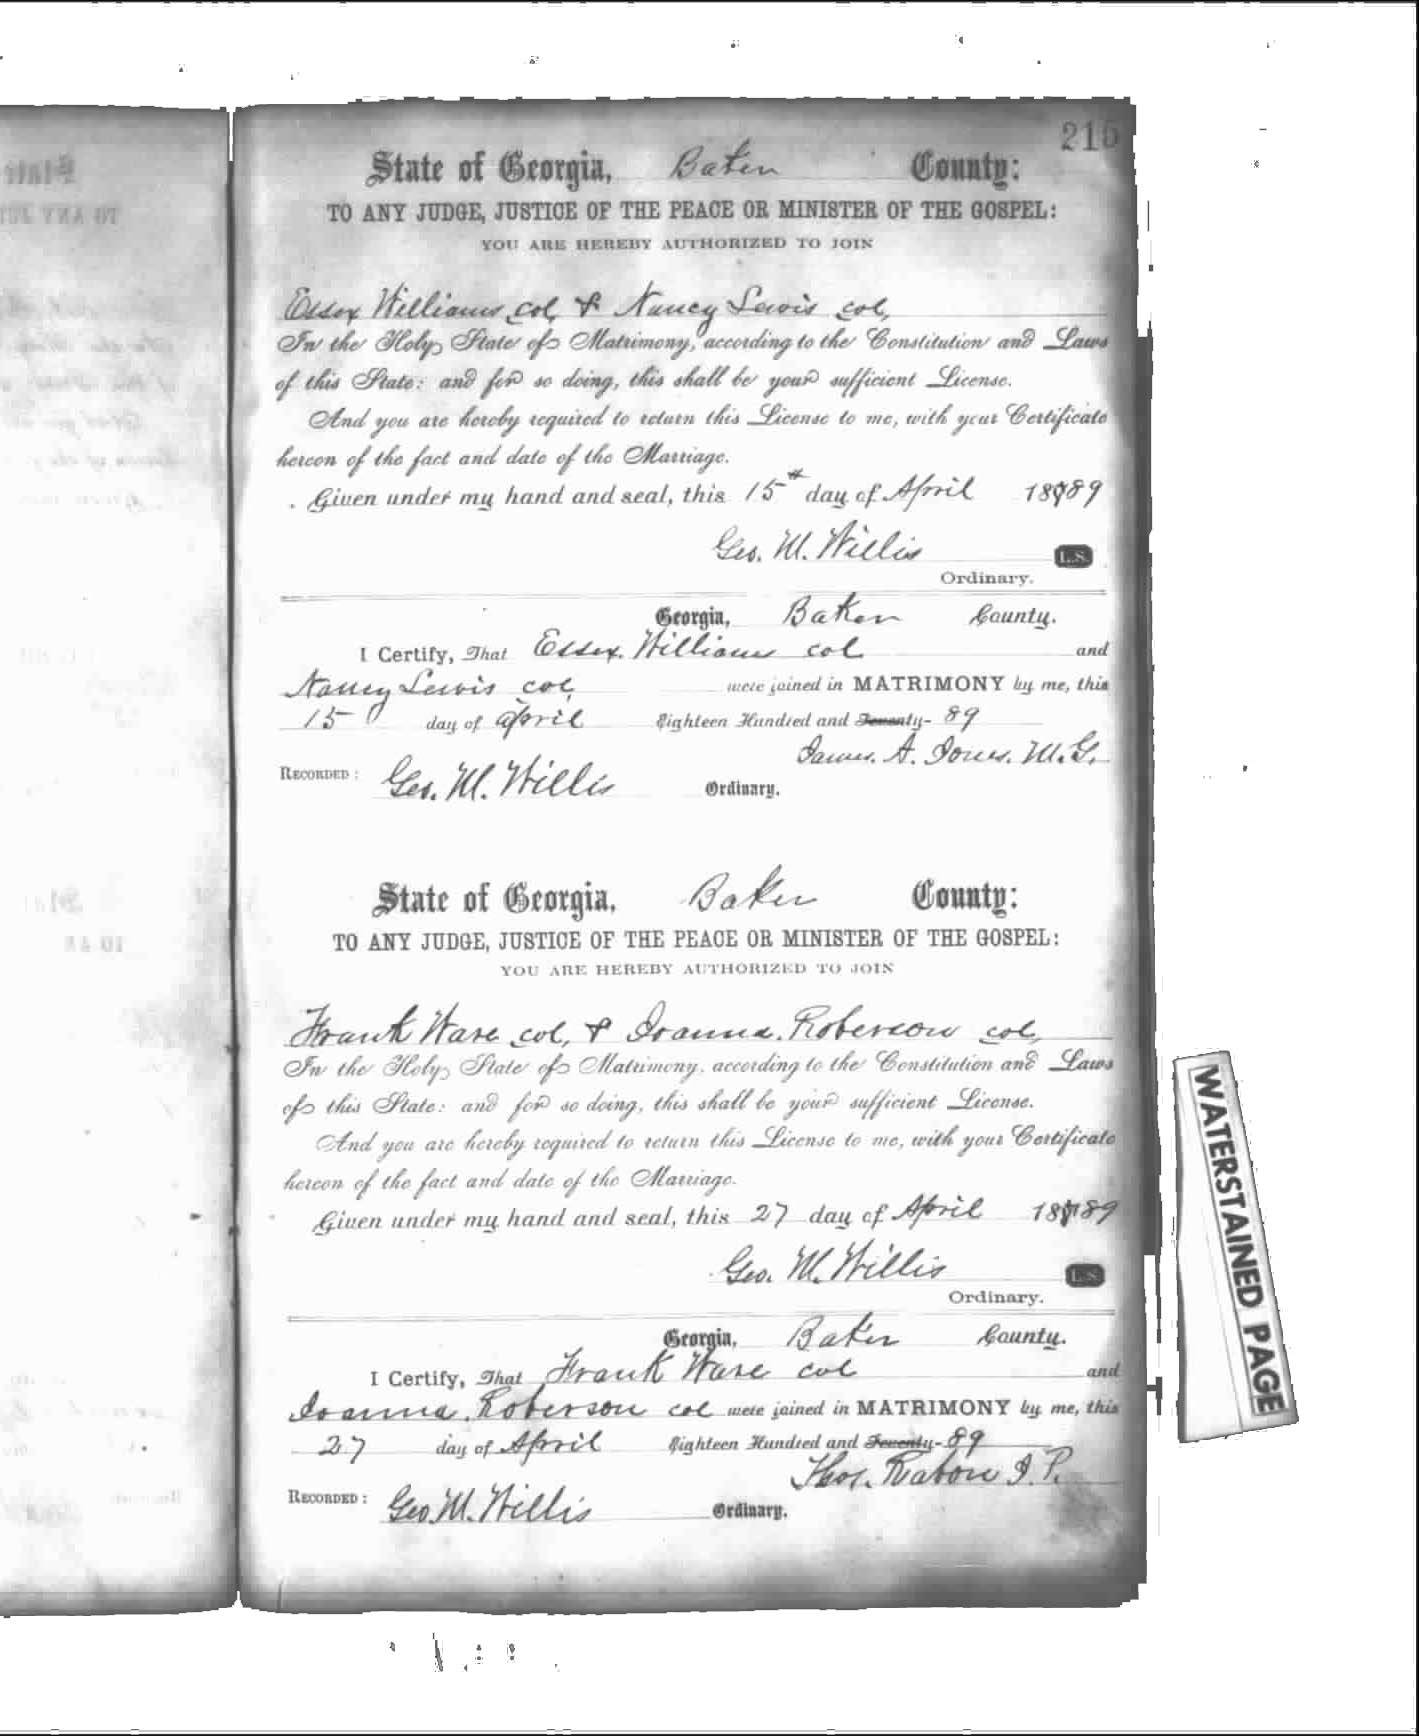 215
State of Georgia, Baker County:
TO ANY JUDGE, JUSTICE OF THE PEACE OR MINISTER OF THE GOSPEL:
YOU ARE HEREBY AUTHORIZED TO JOIN
Essex Williams col, & Nancy Lewis col,
In the Holy State of Matrimony, according to the Constitution and Laws
of this State: and for so doing, this shall be your sufficient License.
And you are hereby required to return this License to me, with your Certificate
hereon of the fact and date of the Marriage.
Given under my hand and seal, this 15th day of April 1889
Geo. M. Willis L.S.
Ordinary.
Georgia, Baker County.
I Certify, That Essex Williams col and
Nancy Lewis col, were joined in MATRIMONY by me, this
15 day of April Eighteen Hundred and Seventy- 89
James. A. Jones. M.G.
RECORDED: Geo. M. Willis Ordinary.
State of Georgia, Baker County:
TO ANY JUDGE, JUSTICE OF THE PEACE OR MINISTER OF THE GOSPEL:
YOU ARE HEREBY AUTHORIZED TO JOIN
Frank Ware col, & Joanna Roberson col,
In the Holy State of Matrimony, according to the Constitution and Laws
of this State: and for so doing, this shall be your sufficient License.
And you are hereby required to return this License to me, with your Certificate
hereon of the fact and date of the Marriage.
Given under my hand and seal, this 27 day of April 1889
Geo. M. Willis L.S.
Ordinary.
Georgia, Baker County.
I Certify, That Frank Ware col and
Joanna Roberson col were joined in MATRIMONY by me, this
27 day of April Eighteen Hundred and Seventy- 89
Thos. J.P.
RECORDED: Geo. M. Willis Ordinary.
WATERSTAINED PAGE